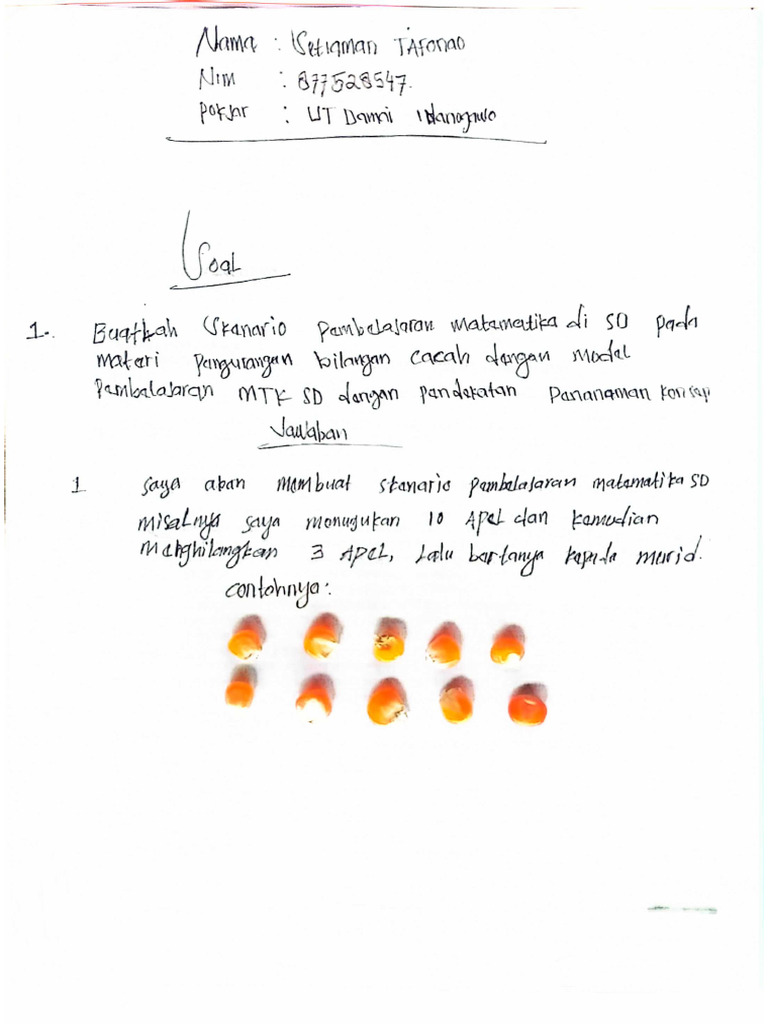 Nama : Setiaman TAFonao
Nim : 877528547.
Pokjar : UT Damai Idanogawo
Soal
1. Buatkah Skanario pambalajaran matamatika di SD pada
matari pangurangan bilangan cacah dangan modal
Pambalajaran MTK SD dangan pandakatan Pananaman konsap
Jawaban
1 Saya akan mambuat skanario pambalajaran matamatika SD
misalnya saya monujukan 10 APAL dan kamudian
manghilangkan 3 APAL, Lalu bartanya kapada murid.
contohnya: